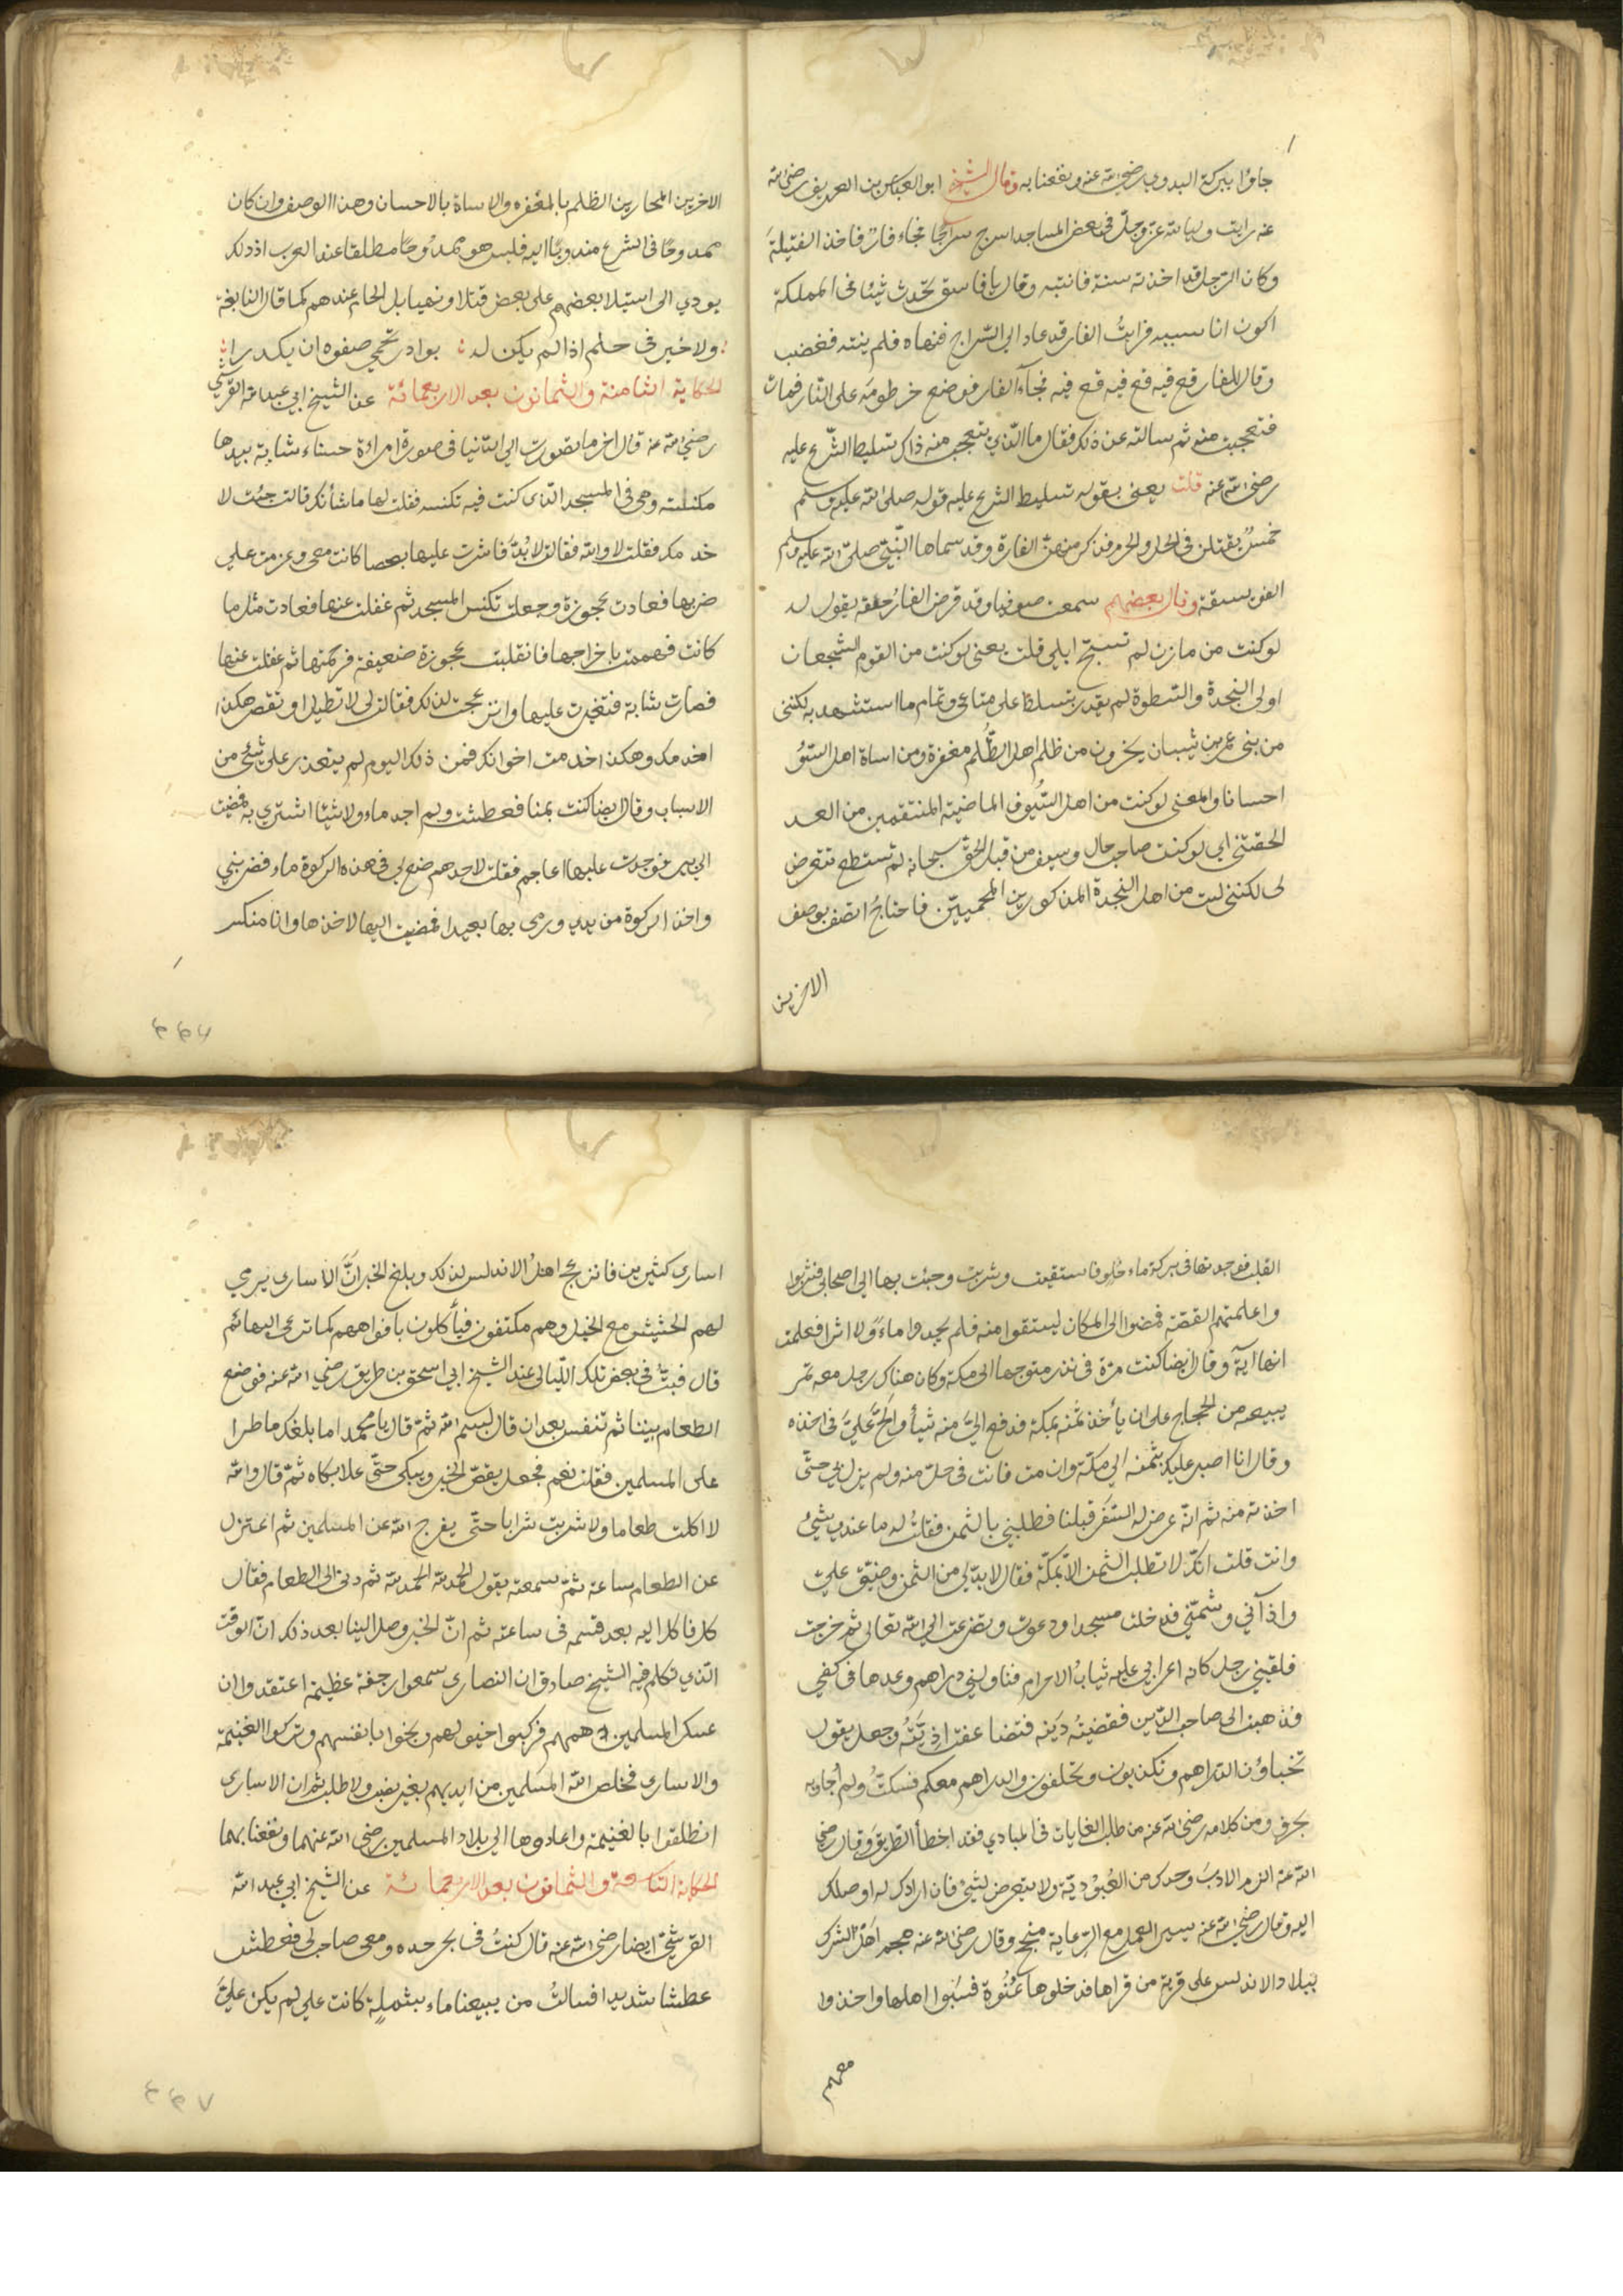 جاؤا ببركة البدوي رضي الله عنه ونفعنا به وقال الشيخ ابو العباس بن العريف رضي الله
عنه رايت وليا لله عز وجل في بعض المساجد اسرج سراجا فجاء فار فاخذ الفتيلة
وكان الرجل قد اخذته سنة فانتبه وقال يا فاسق تحدث شيئا في المملكة
اكون انا سببه فرايت الفار قد عاد الى السراج فنهاه فلم ينته فغضب
وقال للفار فتح فيه فتح فيه فتح فيه فجاء الفار فوضع خرطومه على النار فمات
فتعجبت منه ثم سالته عن ذلك فقال ما الذي تتعجب منه ذاك تسليط الشرع عليه
رضي الله عنه قلت يعني بقوله تسليط الشرع عليه قوله صلى الله عليه وسلم
خمس يقتلن في الحل والحرم فذكر منهن الفارة وقد سماها النبي صلى الله عليه وسلم
الفويسقة وقال بعضهم سمعت صوفيا وقد قرض الفار خفه يقول له
لو كنت من مازن لم تستبح ابلي قلت يعني لو كنت من القوم الشجعان
اولى النجدة والسطوة لم يقدر يتسلط على متاعي وتمام ما استشهد به لكنني
من بني عمر بن شيبان يخرون من ظلم اهل الظلم مغفرة ومن اساة اهل السؤ
احسانا والمعنى لو كنت من اهل السيوف الماضية المنتقمين من العد
لحقتني اي لو كنت صاحب حال وسيف من قبل الحق سبحانه لم تستطع تتعرض
لي لكنني لست من اهل النجدة المذكورين المحميين فاحتاج اتصف بوصف
الاخرين
الاخرين المجازين الظلم بالمغفره والاساة بالاحسان وهذا الوصف وان كان
ممدوحا في الشرع مندوبا اليه فليس هو ممدوحا مطلقا عند العرب اذ ذلك
يودي الى استيلا بعضهم على بعض قتلا ونهبا بل الحلم عندهم كما قال النابغة
ولا خير في حلم اذا لم يكن له بوادر تحمي صفوه ان يكدرا
الحكاية الثامنة والثمانون بعد الاربعمائة عن الشيخ ابي عبد الله القرشي
رضي الله عنه قال اخر ما تصورت الى الدنيا في صورة امراة حسناء شابة بيدها
مكنسة وهي في المسجد الذي كنت فيه تكنسه فقلت لها ما شأنك قالت جئت لا
خدمك فقلت لا والله فقالت لا بد فاشرت عليها بعصا كانت معي وعزمت على
ضربها فعادت عجوزة وجعلت تكنس المسجد ثم غفلت عنها فعادت مثل ما
كانت فهممت باخراجها فانقلبت عجوزة ضعيفة فرحمتها ثم غفلت عنها
فصارت شابة فتغيرت عليها وانزعجت لذلك فقالت لي لا تطيل او تقصر هكذا
اخدمك وهكذا خدمت اخوانك فمن ذلك اليوم لم يتعذر علي شئ من
الاسباب وقال ايضا كنت بمنا فعطشت ولم اجد ماء ولا شيئا اشتري به فمضيت
الى بير فوجدت عليها اعاجم فقلت لاحدهم ضع لي في هذه الركوة ماء فضربني
واخذ الركوة من يدي ورمى بها بعيدا فمضيت اليها لاخذها وانا منكسر
٤٤٦
القلب فوجدتها في بركة ماء حلو فاستقيت وشربت وجئت بها الى اصحابي فشربوا
واعلمتهم القصة فمضوا الى المكان ليستقوا منه فلم يجدوا ماء ولا اثرا فعلمت
انها آية وقال ايضا كنت مرة في متوجها الى مكة وكان هناك رجل معه تمر
يبيعه من الحجاج على ان يأخذ ثمنه بمكة فدفع الي منه شيأ والح علي في اخذه
وقال انا اصبر عليك بثمنه الى مكة وان مت فانت في حل منه ولم يزل بي حتى
اخذته منه ثم انه عرض له السفر قبلنا فطلبني بالثمن فقلت له ما عندي شيئ
وانت قلت انك لا تطلب الثمن الا بمكة فقال لا بد لي من الثمن وضيق علي
واذاني وشمتني فدخلت مسجدا ودعوت وتضرعت الى الله تعالى ثم خرجت
فلقيني رجل كانه اعرابي عليه ثياب الاحرام فناولني دراهم وعدها في كفي
فذهبت الى صاحب الدين فقضيته دينه فتضاعفت اذيته وجعل يقول
تخباؤن الدراهم وتكذبون وتحلفون والدراهم معكم فسكت ولم اجاوبه
بحرف ومن كلامه رضي الله عنه من طلب الغايات في المبادي فقد اخطأ الطريق وقال رضي
الله عنه الزم الادب وحدك من العبودية ولا تتعرض لشيئ فان ارادك له اوصلك
اليه وقال رضي الله عنه يسير العمل مع الرعاية منجح وقال رضي الله عنه هجم اهل الشرك
ببلاد الاندلس على قرية من قراها فدخلوها عنوة فسبوا اهلها واخذوا
معهم
اسارى كثيرين فانزعج اهل الاندلس لذلك وبلغ الخبر ان الاسارى يرمي
لهم الحشيش مع الخيل وهم مكتفون فيأكلون بافواههم كما ترعى البهائم
قال فبت في بعض تلك الليالي عند الشيخ ابي اسحق بن طريق رضي الله عنه فوضع
الطعام بيننا ثم تنفس بعد ان قال بسم الله ثم قال يا محمد اما بلغك ما طرا
على المسلمين فقلت نعم فجعل يقص الخبر ويبكي حتى علا بكاه ثم قال والله
لا اكلت طعاما ولا شربت شرابا حتى يفرج الله عن المسلمين ثم اعتزل
عن الطعام ساعة ثم سمعته يقول الحمد لله الحمد لله ثم دنى الى الطعام فقال
كل فاكل اليه بعد قسمه في ساعته ثم ان الخبر وصل الينا بعد ذلك ان الوقت
الذي تكلم فيه الشيخ صادق ان النصارى سمعوا رجفة عظيمة اعتقدوا ان
عسكر المسلمين همهم فركبوا خيولهم ونجوا بانفسهم وتركوا الغنيمة
والاسارى فخلص الله المسلمين من ايديهم بغير ولا طلب ثم ان الاسارى
انطلقوا بالغنيمة واعادوها الى بلاد المسلمين رضي الله عنهما ونفعنا بهما
الحكاية التاسعة والثمانون بعد الاربعمائة عن الشيخ ابي عبد الله
القرشي ايضا رضي الله عنه قال كنت في بحر جده ومعي صاحب لي فعطش
عطشا شديدا فسالت من يبيعنا ماء بشملة كانت علي لم يكن علي
٤٤٧